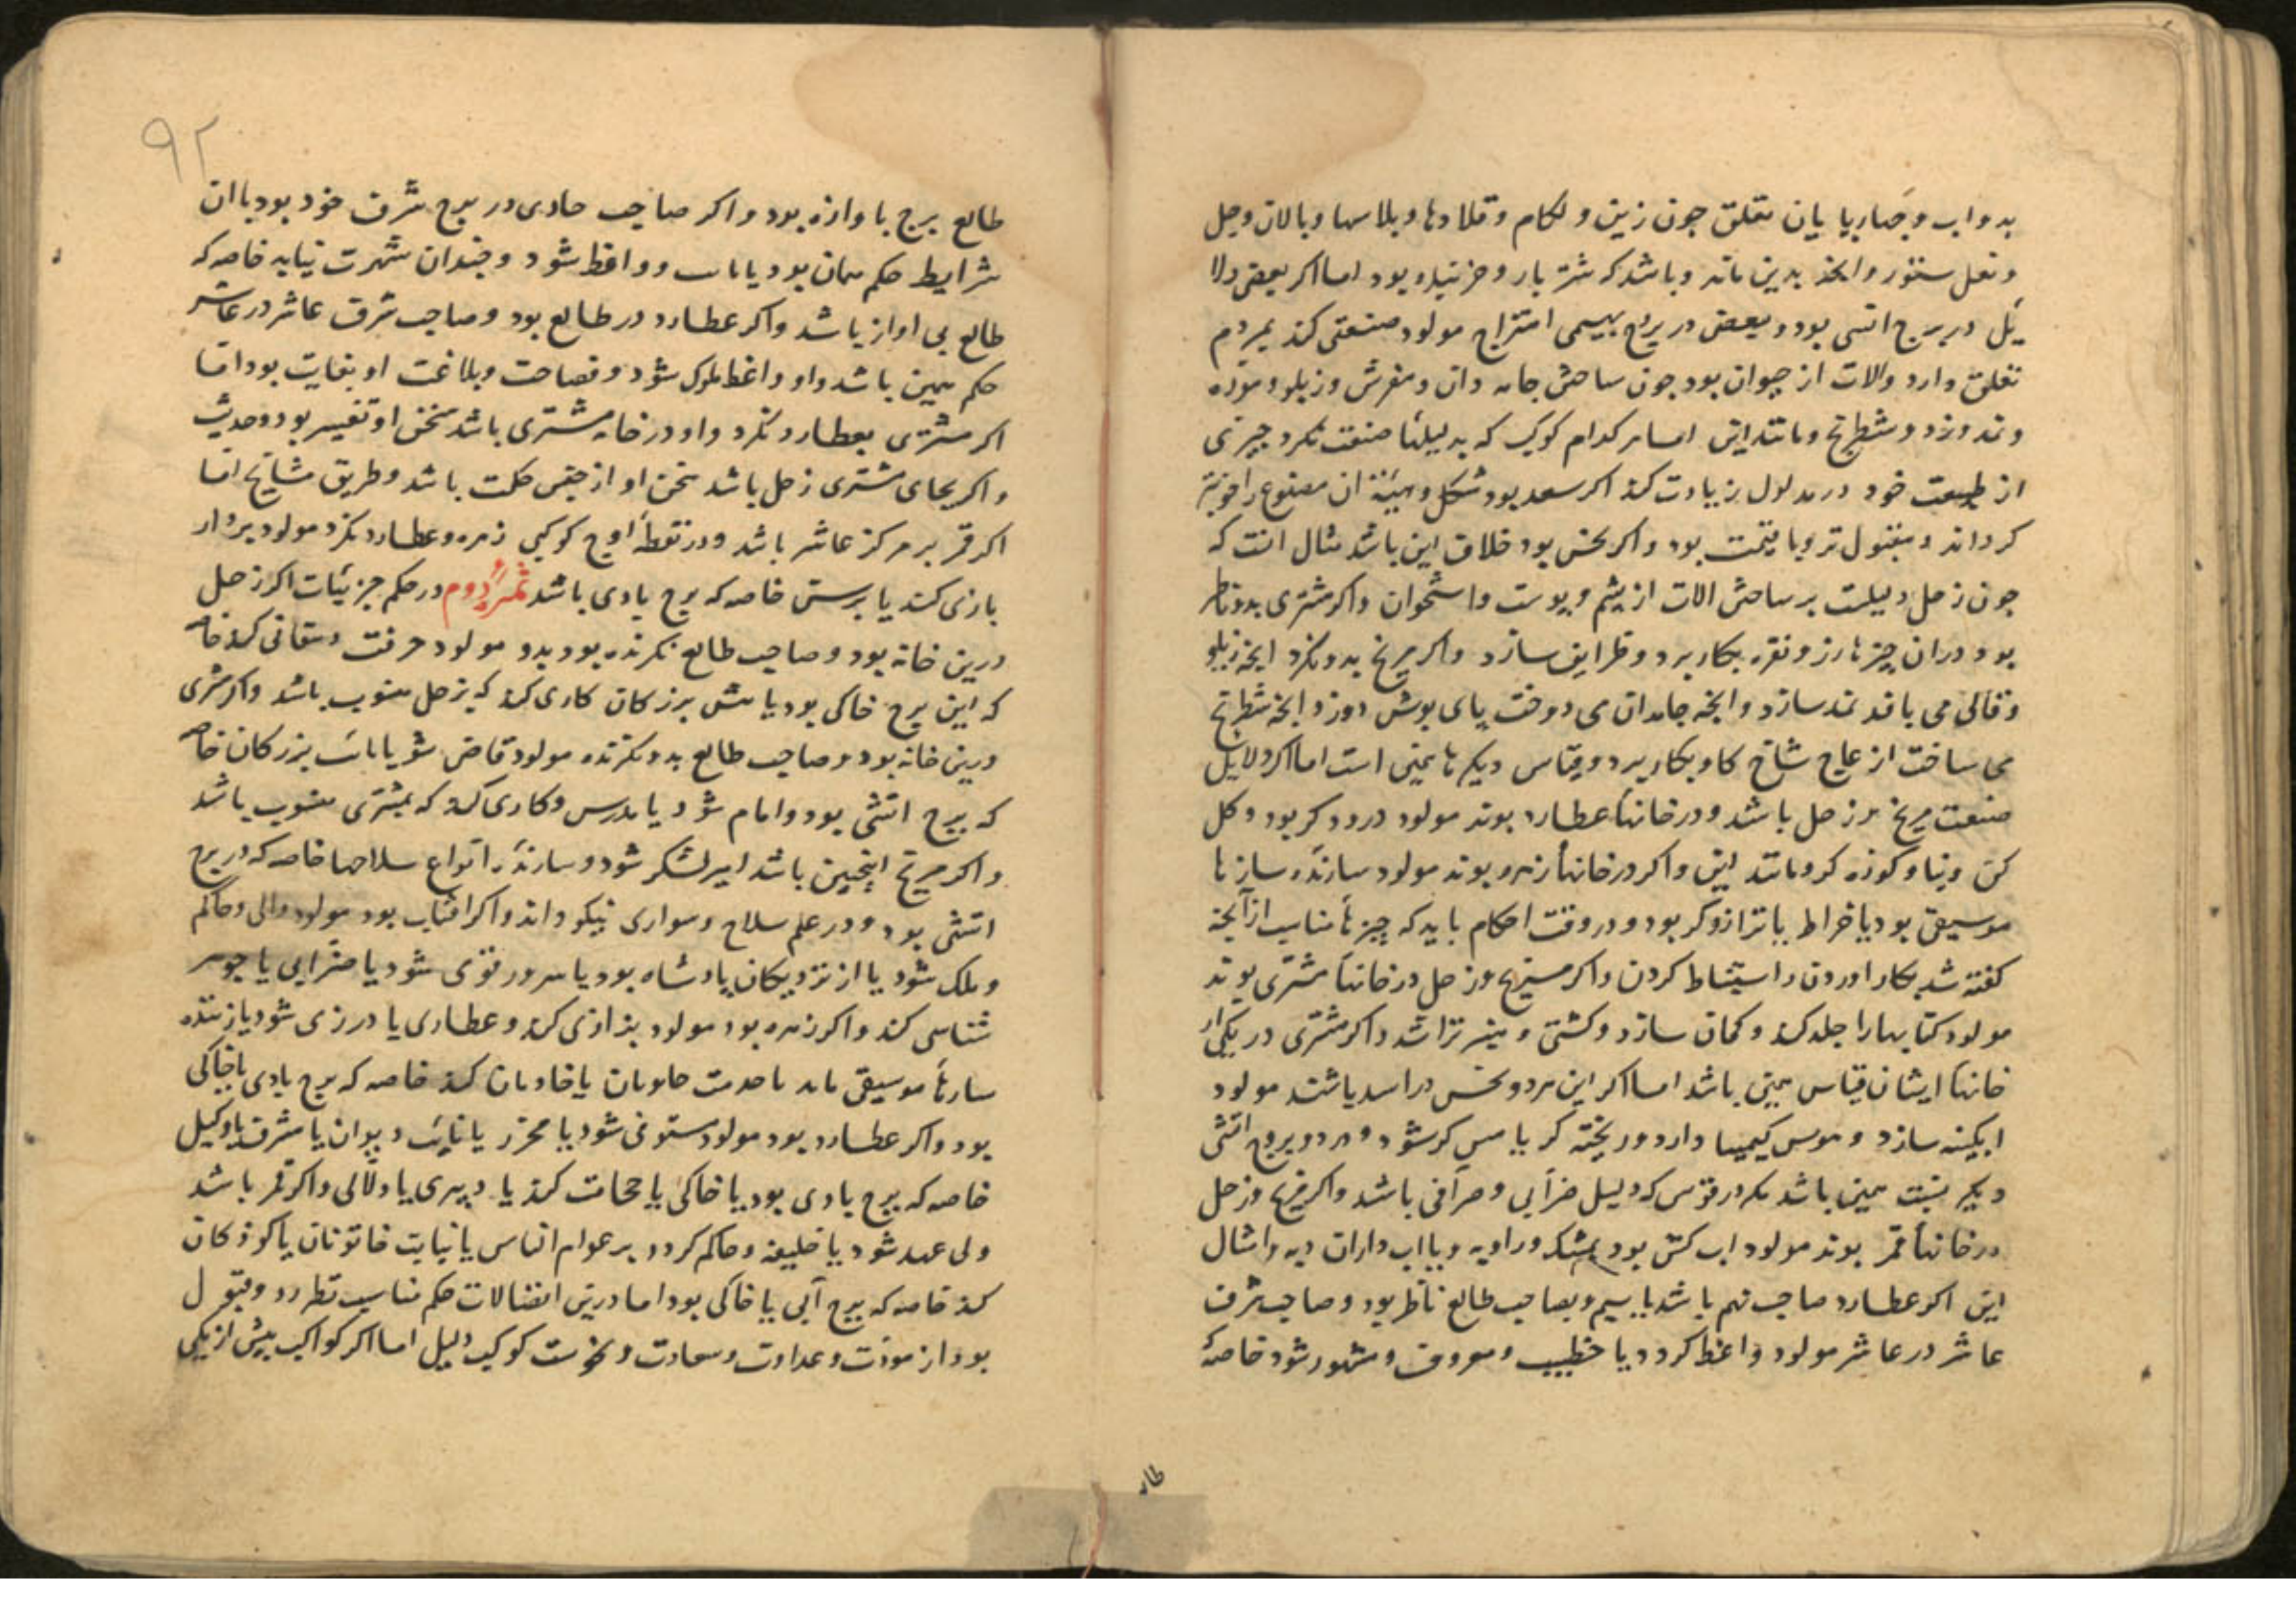 بدواب و چهارپایان تعلق چون زین و لکام و قلادها و پلاسها و پالان وجل
و نعل ستور وانچ بدین ماند و باشد که شتربار و خربنده بود اما اکر بعضی دلا
یل در برج اتشی بود و بعضی در برج بهیمی امتزاج مولود صنعتی کند بمردم
تعلق دارد والات از حیوان بود چون ساختن جامه دان و مفرش و زیلو و موزه
و نمد و شطرنج و مانند این اما هر کدام کوکب که بدلیلها صنعت نکرد چیزی
از طبیعت خود در مدلول زیادت کند اکر سعد بود شکل و هیئة ان مصنوع را خوبتر
کرداند و مقبول تر و با قیمت بود و اکر نحس بود خلاف این باشد مثال انست که
چون زحل دلیلست بر ساختن الات از پشم و پوست و استخوان و اکر مشتری بدو ناظر
بود دران چیزها زر و نقره بکار برد و ظرایف سازد و اکر مریخ بدو نکرد انچه زیلو
و قالی می بافد نمد سازد وانچه جامدان می دوخت پای پوش دوزد انچه شطرنج
می ساخت از عاج شاخ کاو بکار برد و قیاس دیکرها همین است اما اکر دلایل
صنعت مریخ و زحل باشد و در خانهاء عطارد بوند مولود درودکر بود و کل
کن و بنا و کوزه کر و مانند این و اکر در خانهاء زهره بوند مولود سازنده سازها
موسیقی بود یا خراط یا ترازوکر بود و در وقت احکام باید که چیزها مناسب ازانچه
کفته شد بکار اوردن و استنباط کردن و اکر مریخ و زحل در خانهاء مشتری بوند
مولود کتابها را جلد کند و کمان سازد و کشتی و منبر تراشد و اکر مشتری در یکی از
خانهاء ایشان قیاس همین باشد اما اکر این هر دو نحس در اسد باشند مولود
ابکینه سازد و هوس کیمیا دارد و ریخته کر یا مس کر شود و هر دو بروج اتشی
دیکر نسبت همین باشد مکر در قوس که دلیل ضرابی و صرافی باشد و اکر مریخ و زحل
در خانهاء قمر بوند مولود اب کش بود بمشک و راویه و یا اب داران دیه و امثال
این اکر عطارد صاحب نهم باشد یا سیم و بصاحب طالع ناظر بود و صاحب شرف
عاشر در عاشر مولود واعظ کردد یا خطیب و معروف و مشهور شود خاصه
طا
۹۲
طالع برج با وازه بود و اکر صاحب حادی در برج شرف خود بود با ان
شرایط حکم همان بود یا واعظ شود و چندان شهرت نیابد خاصه که
طالع بی اواز باشد و اکر عطارد در طالع بود و صاحب شرف عاشر در عاشر
حکم همین باشد واو واعظ ملوک شود و فصاحت و بلاغت او بغایت بود اما
اکر مشتری بعطارد نکرد واو در خانه مشتری باشد سخن او تفسیر بود و حدیث
و اکر بجای مشتری زحل باشد سخن او از جنس حکمت باشد و طریق مشایخ اما
اکر قمر بر مرکز عاشر باشد و در نقطه اوج کوکبی زهره و عطارد نکرد مولود بر دار
بازی کند یا برسن خاصه که برج بادی باشد ثمره دوم در حکم جزئیات اکر زحل
درین خانه بود و صاحب طالع نکرنده بود بدو مولود حرفت دهقانی کند خاصه
که این برج خاکی بود یا پیش بزرکان کاری کند که بزحل منسوب باشد و اکر مشتری
درین خانه بود و صاحب طالع بدو نکرنده مولود قاضی شود یا نایب بزرکان خاصه
که برج اتشی بود و امام شود یا مدرس و کاری کند که بمشتری منسوب باشد
و اکر مریخ اینچنین باشد امیر لشکر شود و سازنده انواع سلاحها خاصه که در برج
اتشی بود و در علم سلاح و سواری نیکو داند و اکر افتاب بود مولود والی و حاکم
و ملک شود یا از نزدیکان پادشاه بود یا سرور قومی شود یا صرابی یا جوهر
شناسی کند و اکر زهره بود مولود بزازی کند و عطاری یا درزی شود یا زننده
سازها موسیقی یا خدمت خاتونان یا خادمان کند خاصه که برج بادی یا خاکی
بود و اکر عطارد بود مولود مستوفی شود یا محرر یا نایب دیوان یا مشرف یا وکیل
خاصه که برج بادی بود یا خاکی یا حجامت کند یا دبیری یا دلالی و اکر قمر باشد
ولی عهد شود یا خلیفه و حاکم کردد بر عوام الناس یا نیابت خاتونان یا کودکان
کند خاصه که برج آبی یا خاکی بود اما درین اتصالات حکم مناسب نظر رد و قبول
بود از مودت و عداوت و سعادت و نحوست کوکب دلیل اما اکر کواکب بیش از یکی